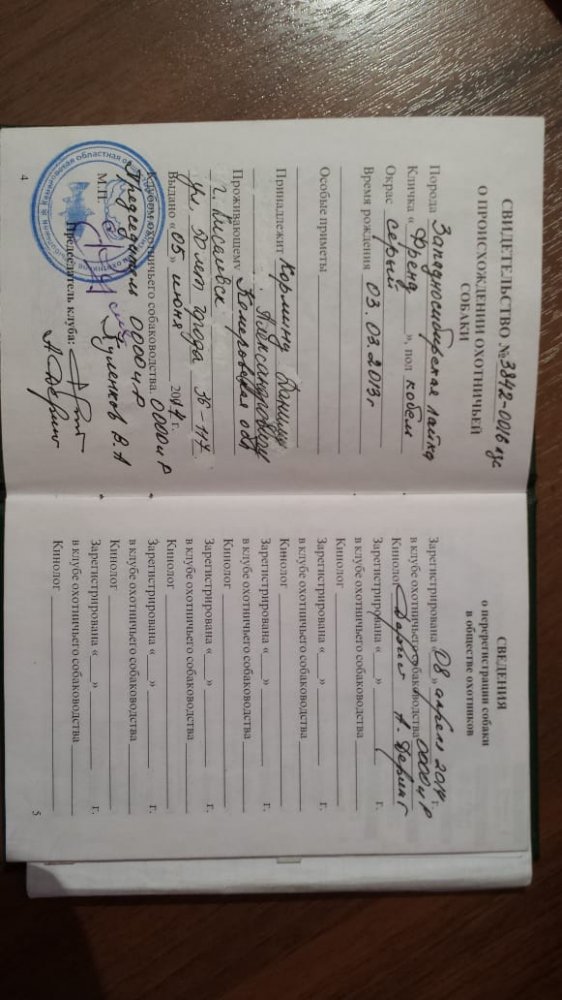 СВИДЕТЕЛЬСТВО № 3842-0016
О ПРОИСХОЖДЕНИИ ОХОТНИЧЬЕЙ
СОБАКИ
Порода Западносибирская лайка
Кличка « Френд », пол кобель
Окрас серый
Время рождения 03.03.2013г
Особые приметы
Принадлежит Данилу
Александровичу
Проживающему Кемеровская обл
г.
ул. 50 лет города 36-117
Выдано « 05 » июня 2014 г.
Клубом охотничьего собаководства ОООиР
Председатель ОООиР
М.П. Куленков В.А
Председатель клуба:
А. Деринг
4
СВЕДЕНИЯ
о перерегистрации собаки
в обществе охотников
Зарегистрирована « 08 » апреля 2014 г.
в клубе охотничьего собаководства ОООиР
Кинолог А. Деринг
Зарегистрирована « » г.
в клубе охотничьего собаководства
Кинолог
Зарегистрирована « » г.
в клубе охотничьего собаководства
Кинолог
Зарегистрирована « » г.
в клубе охотничьего собаководства
Кинолог
Зарегистрирована « » г.
в клубе охотничьего собаководства
Кинолог
Зарегистрирована « » г.
в клубе охотничьего собаководства
Кинолог
Зарегистрирована « » г.
в клубе охотничьего собаководства
Кинолог
5